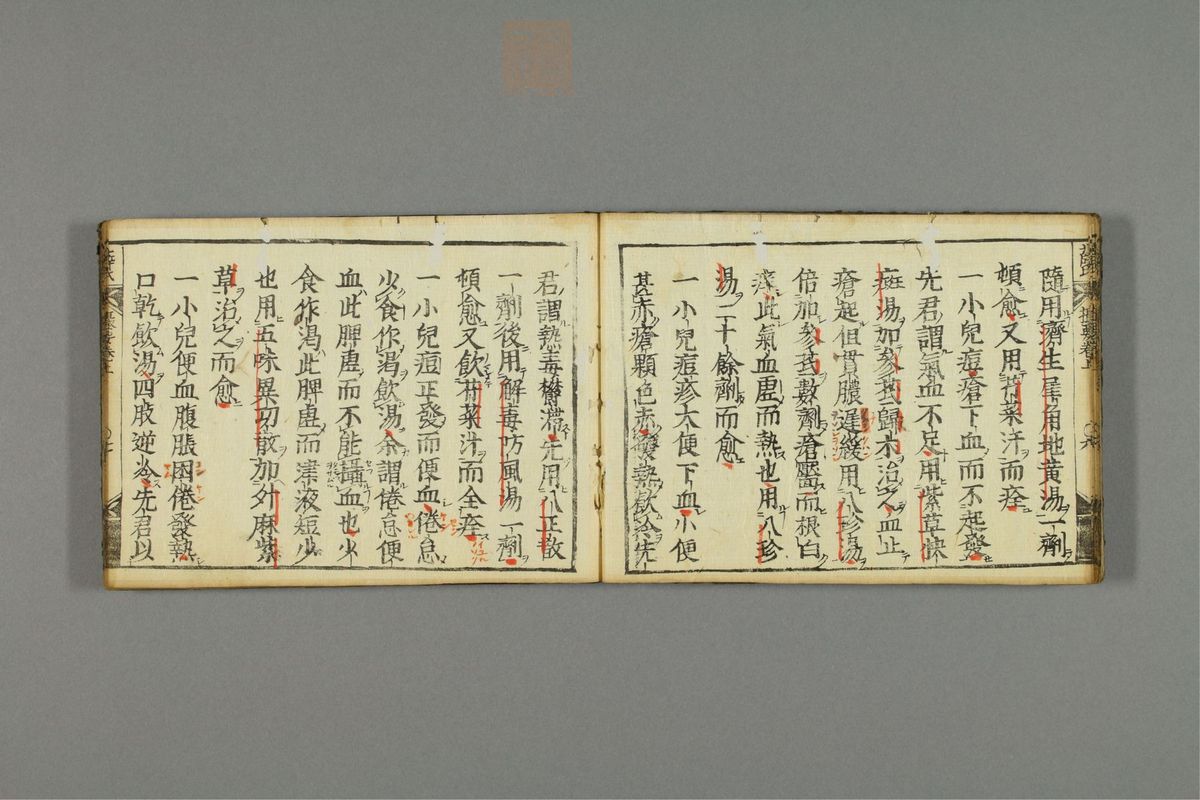 隨用濟生犀角地黃湯一劑
頓愈又用芹菜汗而痊
一小兒痘瘡下血而不起發
先君謂氣血不足用紫草快
癍湯加參芪歸朮治之血止
瘡起但貫膿遲緩用八珍湯
倍加參芪數劑瘡靨而根白
痒此氣血虛而熱也用八珍
湯二十餘劑而愈
一小兒痘疹大便下血小便
甚赤瘡顆色赤發熱飲冷先
君謂熱毒欝滯先用八正散
一劑後用解毒防風湯一劑
頓愈又飲芹菜汁而全痊
一小兒痘正發而便血倦怠
少食作渴飲湯余謂倦怠便
血此脾虛而不能攝血也少
食作渴此脾虛而津液短少
也用五味異功散加升麻紫
草治之而愈
一小兒便血腹脹困倦發熱
口乾飲湯四肢逆冷先君以